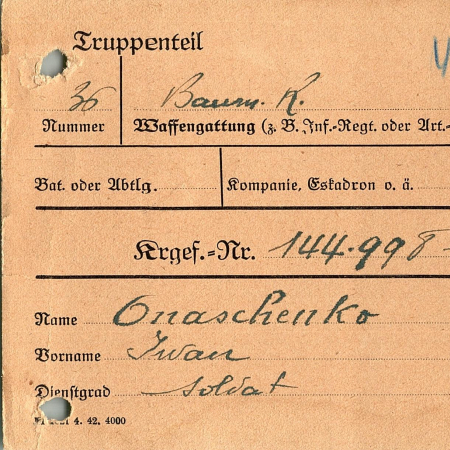 Truppenteil
36 Bauern. R.
Nummer Waffengattung (z. B. Inf.-Regt. oder Art.-
Bat. oder Abtlg. Kompanie, Eskadron o. ä.
Krgef.-Nr. 144.998
Name Onaschenko
Vorname Iwan
Dienstgrad Soldat
4. 42. 4000